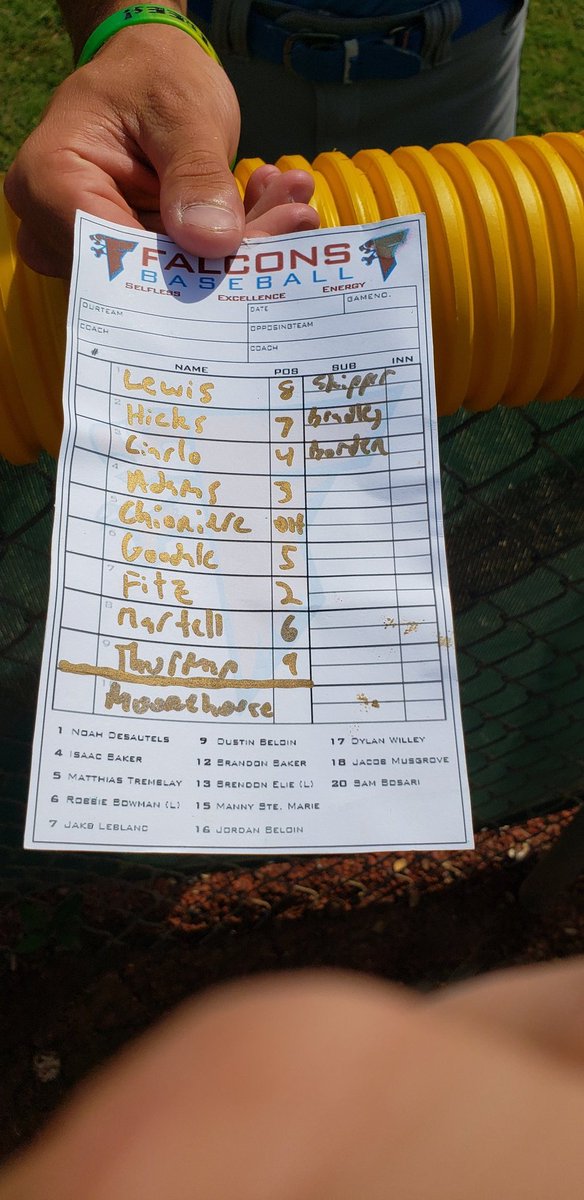 FALCONS
BASEBALL
SELFLESS EXCELLENCE ENERGY
OURTEAM DATE GAMENO.
COACH OPPOSINGTEAM
COACH
# NAME POS SUB INN
1 Lewis 8 Skipper
2 Hicks 7 Bradley
3 Ciarlo 4 Borden
4 Adams 3
5 Chioniere DH
6 Goodale 5
7 Fitz 2
8 Martell 6
9 9
Moorehouse
1 NOAH DESAUTELS 9 DUSTIN BELOIN 17 DYLAN WILLEY
4 ISAAC BAKER 12 BRANDON BAKER 18 JACOB MUSGROVE
5 MATTHIAS TREMBLAY 13 BRENDON ELIE (L) 20 SAM BOSARI
6 ROBBIE BOWMAN (L) 15 MANNY STE. MARIE
7 JAKB LEBLANC 16 JORDAN BELOIN